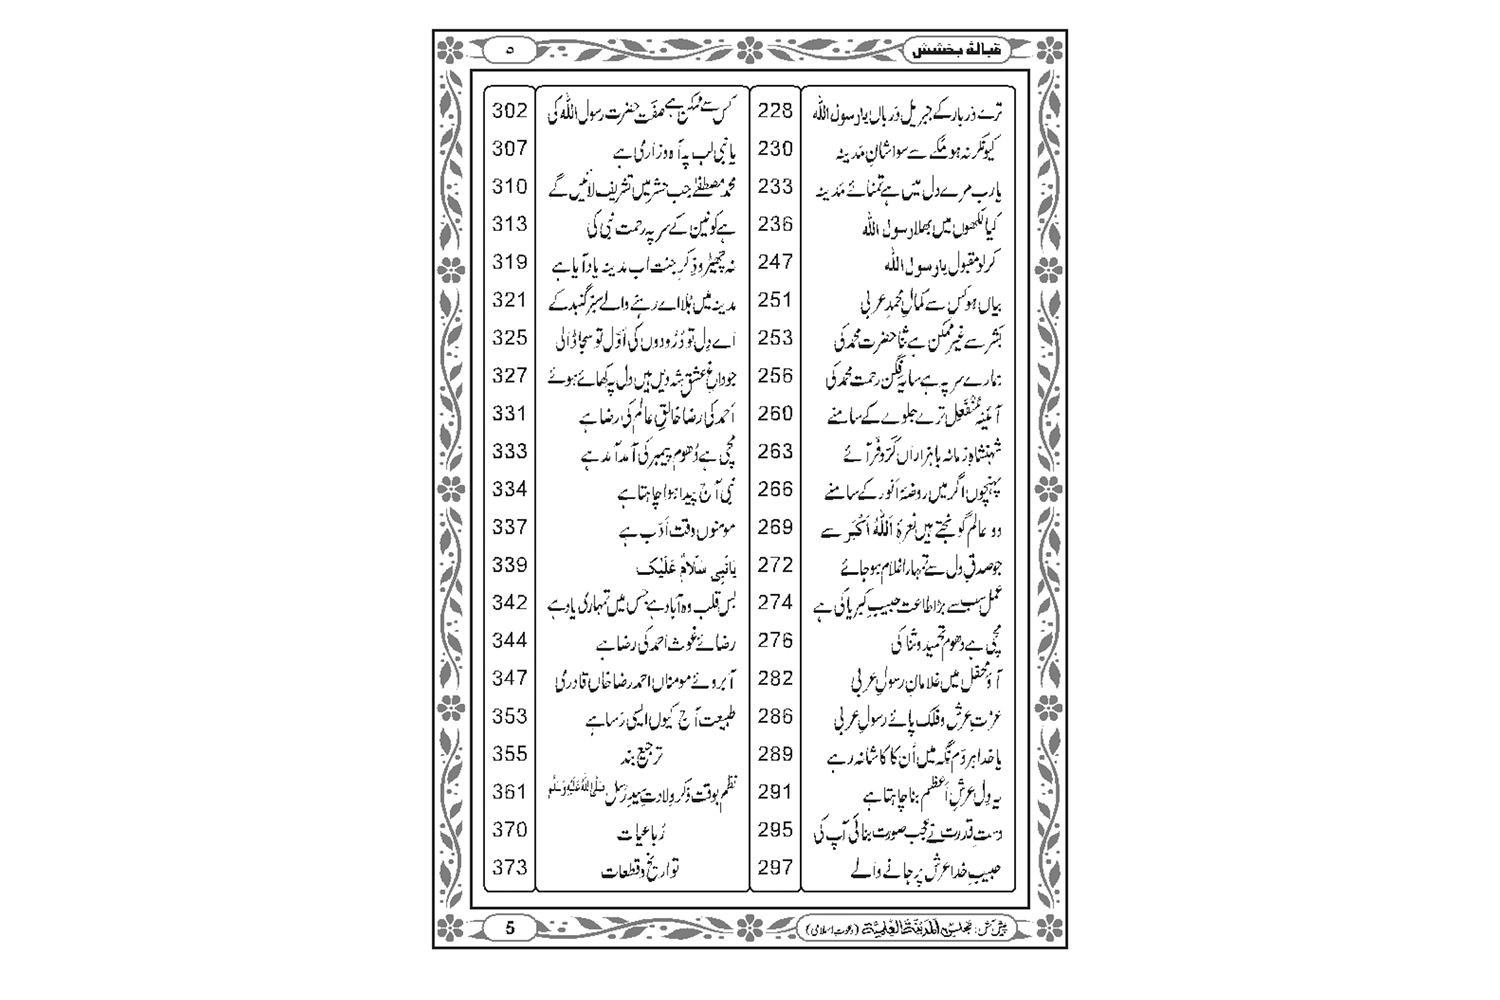 قبالۂ بخشش
۵
ترے دَربار کے جبریل دَرباں یارسول اللہ 228
کیونکر نہ ہو مکّے سے سوا شانِ مَدینہ 230
یارب مرے دل میں ہے تمنائے مَدینہ 233
کیا لکھوں میں بھلا رسول اللہ 236
کرلو مقبول یارسول اللہ 247
بیاں ہو کس سے کمالِ محمدِ عربی 251
بَشَر سے غیر ممکن ہے ثنا حضرت محمد کی 253
ہمارے سر پہ ہے سایہ فِگَن رحمت محمد کی 256
آئینہ مُنْفَعِل ترے جلوے کے سامنے 260
شہنشاہِ زمانہ باہزاراں کَرّوفَر آئے 263
پہنچوں اگر میں روضۂ اَنور کے سامنے 266
دو عالم گونجتے ہیں نعرۂ اَللّٰہُ اَکْبَر سے 269
جو صدقِ دل سے تمہارا غلام ہوجائے 272
عمل سب سے بڑا طاعت حبیبِ کبریا کی ہے 274
مچی ہے دھوم تحمید و ثنا کی 276
آؤ محفل میں غلامانِ رسولِ عربی 282
عزتِ عرش و فلک پائے رسولِ عربی 286
یاخدا ہر دَم نگہ میں اُن کا کاشانہ رہے 289
یہ دِل عرشِ اَعظم بنا چاہتا ہے 291
دستِ قدرت نے عجب صورت بنائی آپ کی 295
حبیبِ خدا عرش پر جانے والے 297
کس سے ممکن ہے صفت حضرت رسول اللہ کی 302
یانبی لب پہ آہ و زاری ہے 307
محمد مصطفےٰ جب حشر میں تشریف لائیں گے 310
ہے کونین کے سر پہ رحمت نبی کی 313
نہ چھیڑو ذِکرِ جنت اب مدینہ یاد آیا ہے 319
مدینہ میں بُلا اے رہنے والے سبز گنبد کے 321
اے دِل تو دُرُودوں کی اَوّل تو سجا ڈالی 325
جو داغِ عشقِ شہِ دیں ہیں دل پہ کھائے ہوئے 327
اَحمد کی رضا خالقِ عالَم کی رضا ہے 331
مچی ہے دُھوم پیمبر کی آمد آمد ہے 333
نبی آج پیدا ہوا چاہتا ہے 334
مومنوں وقت اَدَب ہے 337
یَانَبِی سَلَامٌ عَلَیْک 339
بس قلب وہ آباد ہے جس میں تمہاری یاد ہے 342
رضائے غوث احمد کی رضا ہے 344
آبروئے مومناں احمد رضا خاں قادری 347
طبیعت آج کیوں ایسی رَسا ہے 353
ترجیع بند 355
نظم بوقت ذکرِ ولادتِ سیدِ رُسل صَلَّی اللہُ عَلَیْہِ وَسَلَّم 361
رُباعیات 370
تواریخ و قطعات 373
پیش کش: مجلس اَلْمَدِیْنَۃُ الْعِلْمِیَّۃ (دعوتِ اسلامی)
5